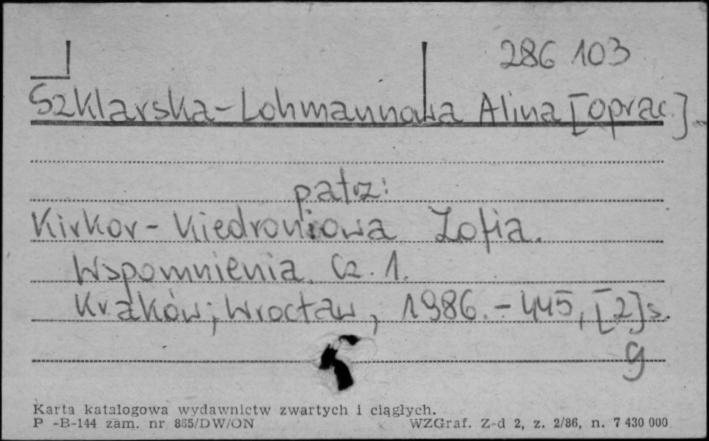 286 103
Szklarska-Lohmannowa Alina [oprac.]
patrz:
Kirkor-Kiedroniowa Zofia.
Wspomnienia. Cz. 1.
Kraków; Wrocław, 1986. - 445, [2] s.
g
Karta katalogowa wydawnictw zwartych i ciągłych.
P -B-144 zam. nr 885/DW/ON WZGraf. Z-d 2, z. 2/86, n. 7 430 000